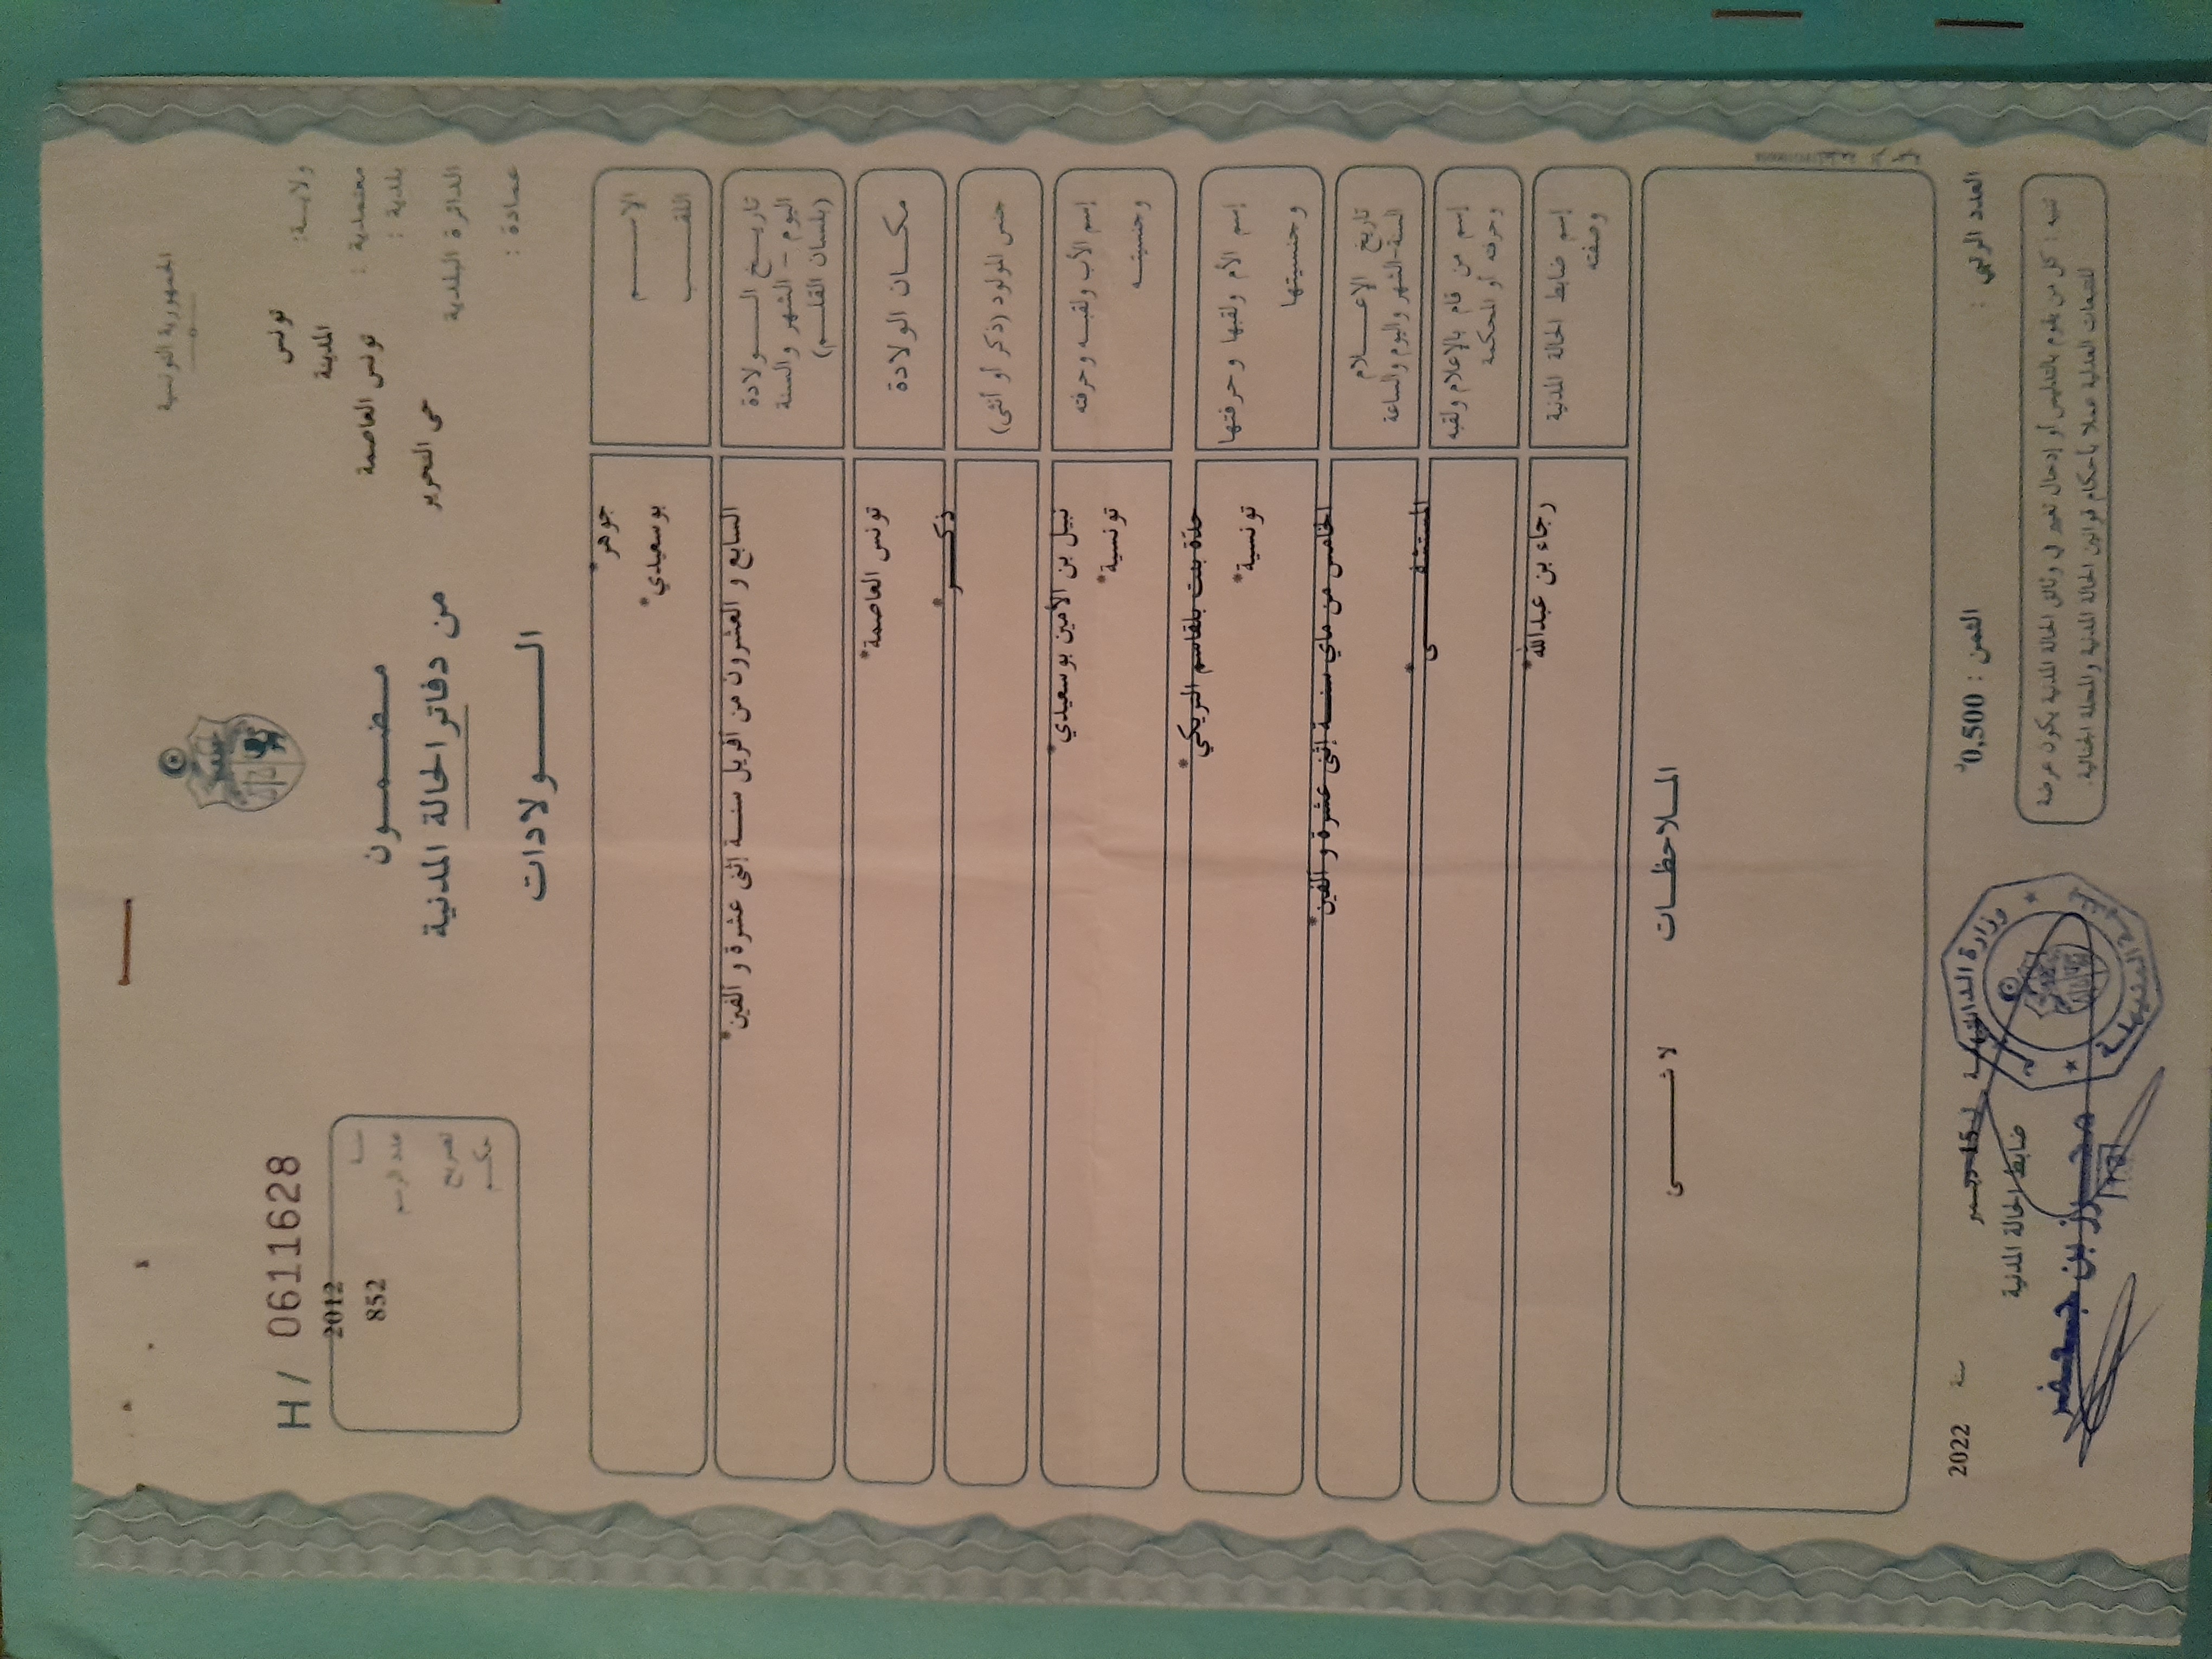 الجمهورية التونسية
ولايـــة: تونس
معتمدية : المدينة
بلدية : تونس العاصمة
الدائرة البلدية حي التحرير
عمادة :
H / 0611628
سنة 2012
عدد الرسم 852
تصريح
حكم
مضمـــون
من دفاتر الحالة المدنية
الـــولادات
الإســـم جوهر*
اللقـــب بوسعيدي*
تاريـــخ الـــولادة السابع و العشرون من افريل سنــة إثنى عشرة و الفين*
اليوم – الشهر والسنة
(بلسان القلـــم)
مكـــان الولادة تونس العاصمة*
جنس المولود (ذكر أو أنثى) ذكـــر*
إسم الأب ولقبـه وحرفته نبيل بن الأمين بوسعيدي*
وجنسيتـــه تونسية*
إسم الأم ولقبها وحرفتها حدّة بنت بلقاسم التريكي*
وجنسيتها تونسية*
تاريخ الإعـــلام الخامس من ماي سنــة إثنى عشرة و الفين*
السنة-الشهر واليوم والساعة
إسم من قام بالإعلام ولقبه المستشفـــى*
وحرفته أو المحكمة
إسم ضابط الحالة المدنية رجاء بن عبدالله*
وصفته
الملاحظـــات
لا شـــئ
العدد الرتبي :
الثمن : 0,500د
ديسمبر سنة 2022
ضابط الحالة المدنية
وزارة الداخلية
تنبيه : كل من يقوم بالتدليس أو إدخال تغيير في وثائق الحالة المدنية يكون عرضة
للتتبعات العدلية عملا بأحكام قوانين الحالة المدنية والمجلة الجنائية.